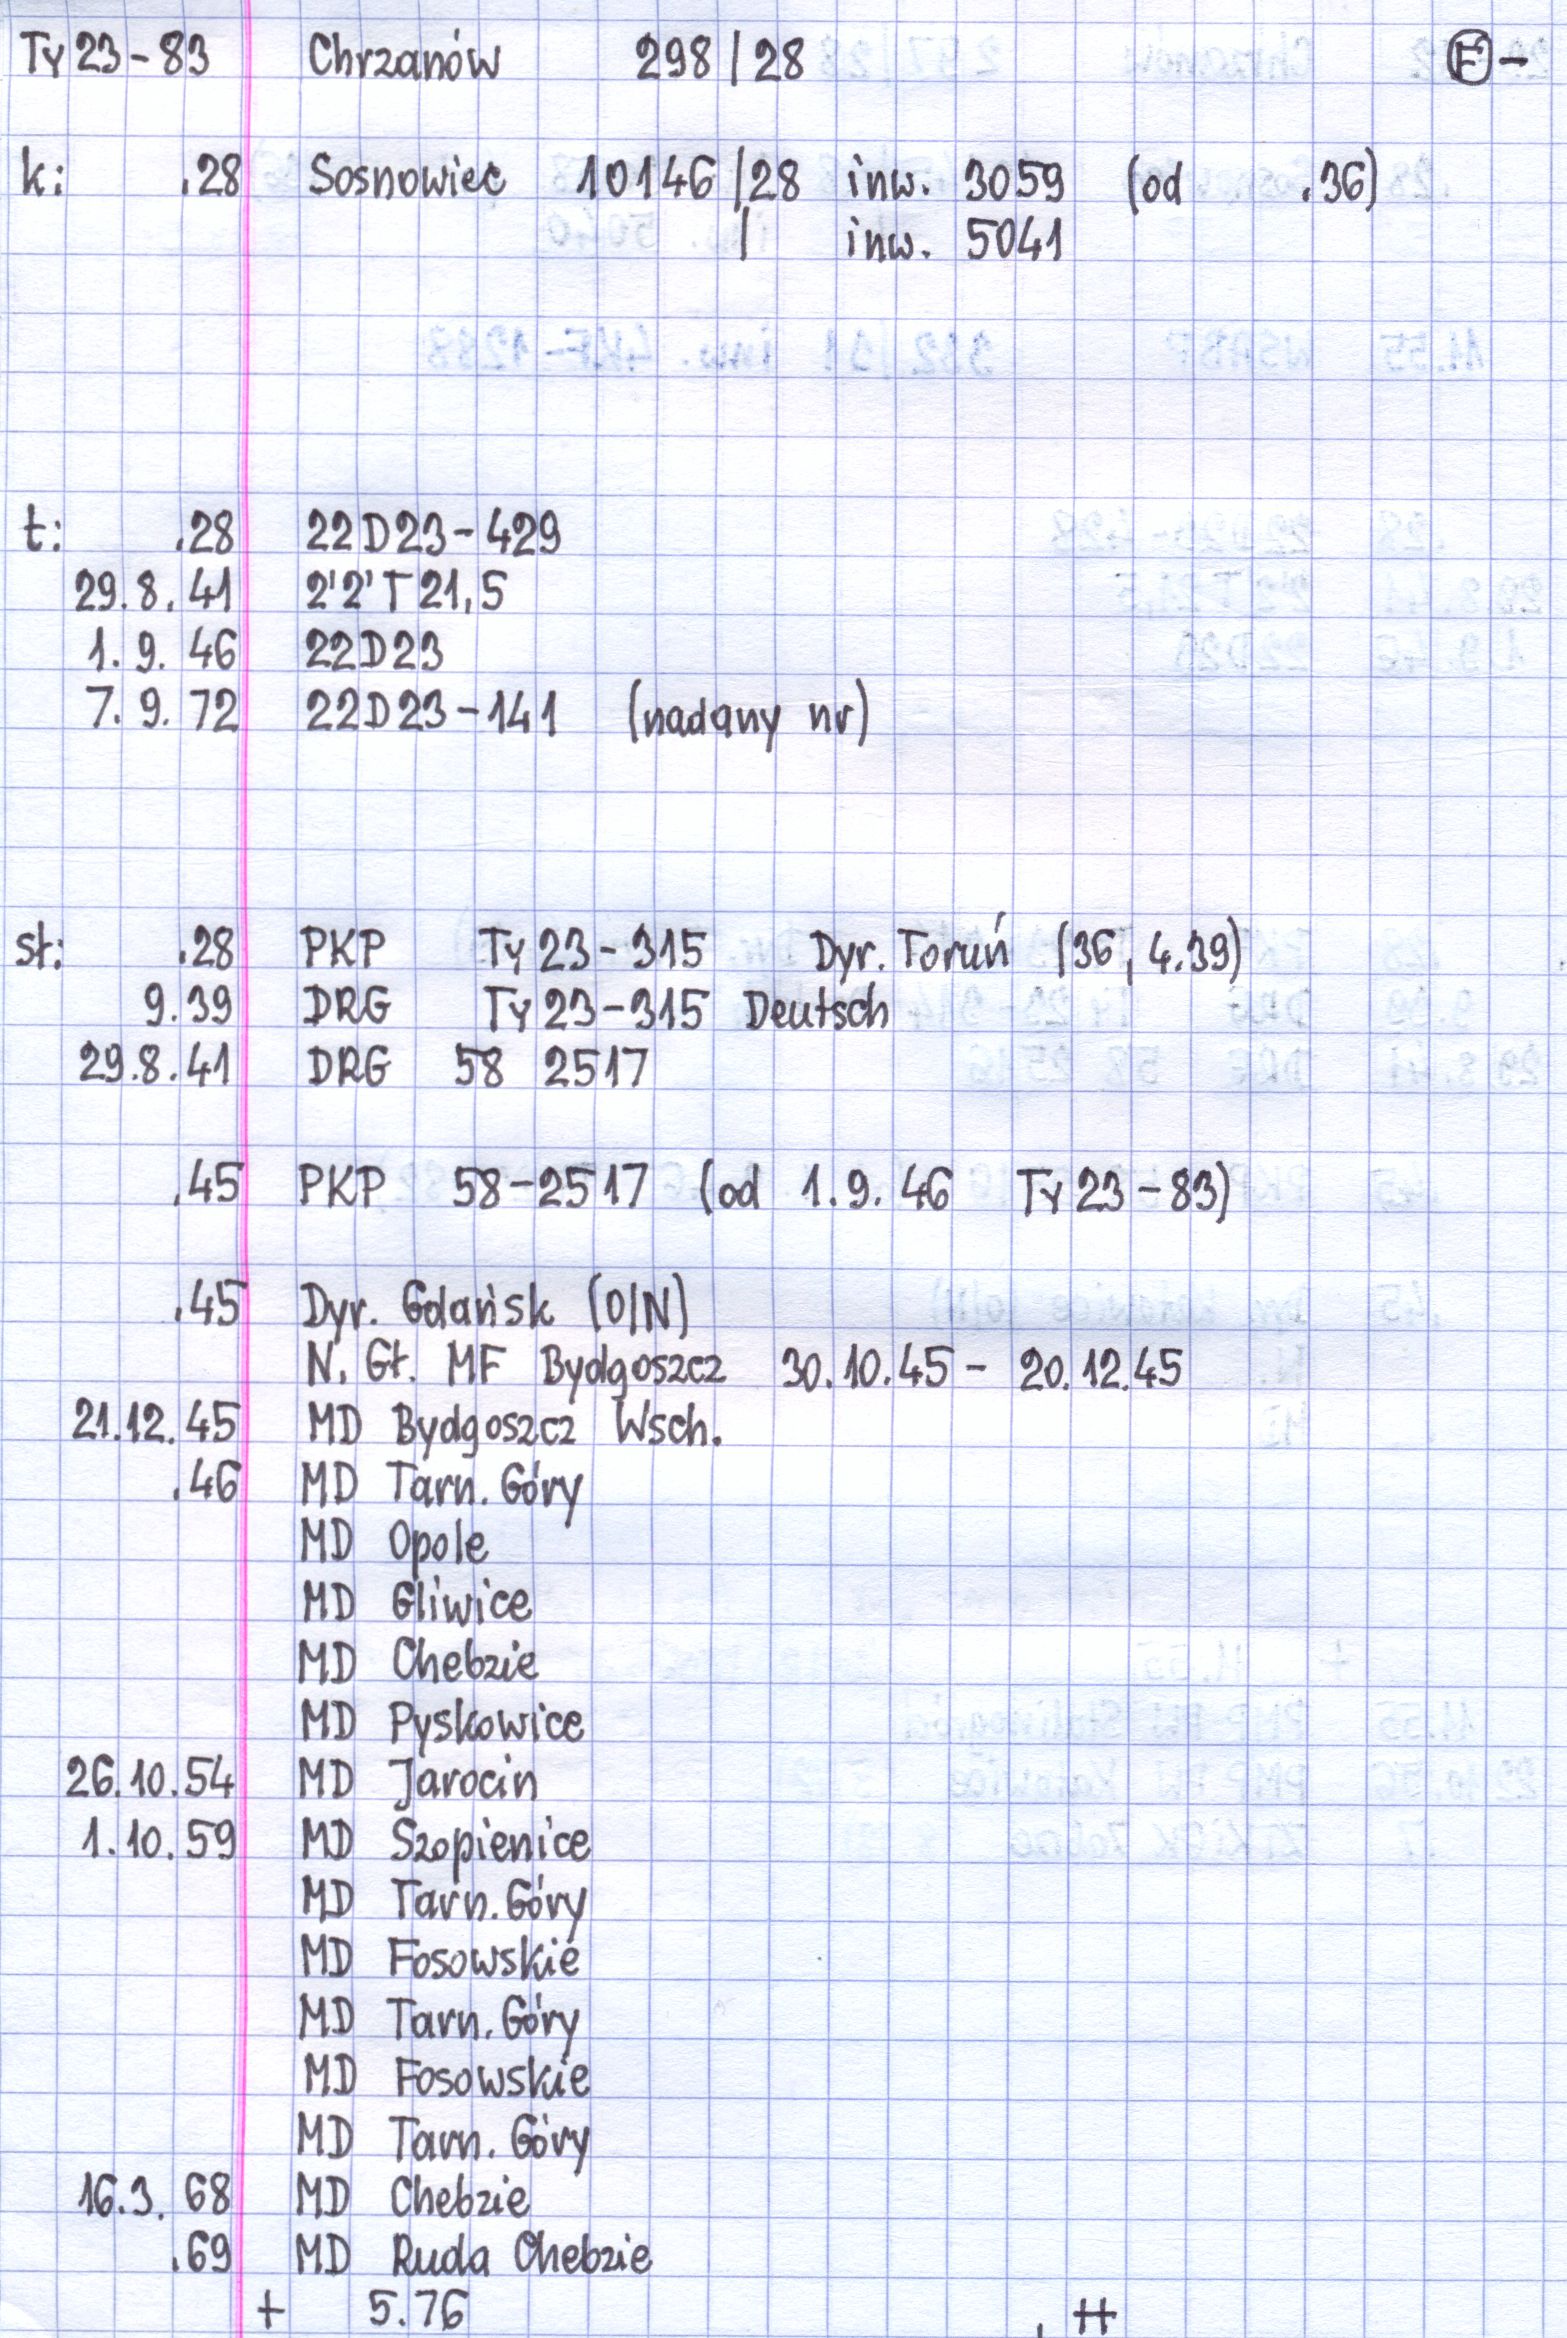 Ty 23-83 Chrzanów 298/28 F-
k: .28 Sosnowiec 10146/28 inw. 3059 (od .36)
/ inw. 5041
t: .28 22D23-429
29.8.41 2'2'T21,5
1.9.46 22D23
7.9.72 22D23-141 (nadany nr)
sł: .28 PKP Ty 23-315 Dyr. Toruń (36, 4.39)
9.39 DRG Ty 23-315 Deutsch
29.8.41 DRG 58 2517
.45 PKP 58-2517 (od 1.9.46 Ty 23-83)
.45 Dyr. Gdańsk (O/N)
N. Gł. MF Bydgoszcz 30.10.45 - 20.12.45
21.12.45 MD Bydgoszcz Wsch.
.46 MD Tarn. Góry
MD Opole
MD Gliwice
MD Chebzie
MD Pyskowice
26.10.54 MD Jarocin
1.10.59 MD Szopienice
MD Tarn. Góry
MD Fosowskie
MD Tarn. Góry
MD Fosowskie
MD Tarn. Góry
16.3.68 MD Chebzie
.69 MD Ruda Chebzie
+ 5.76 . ++